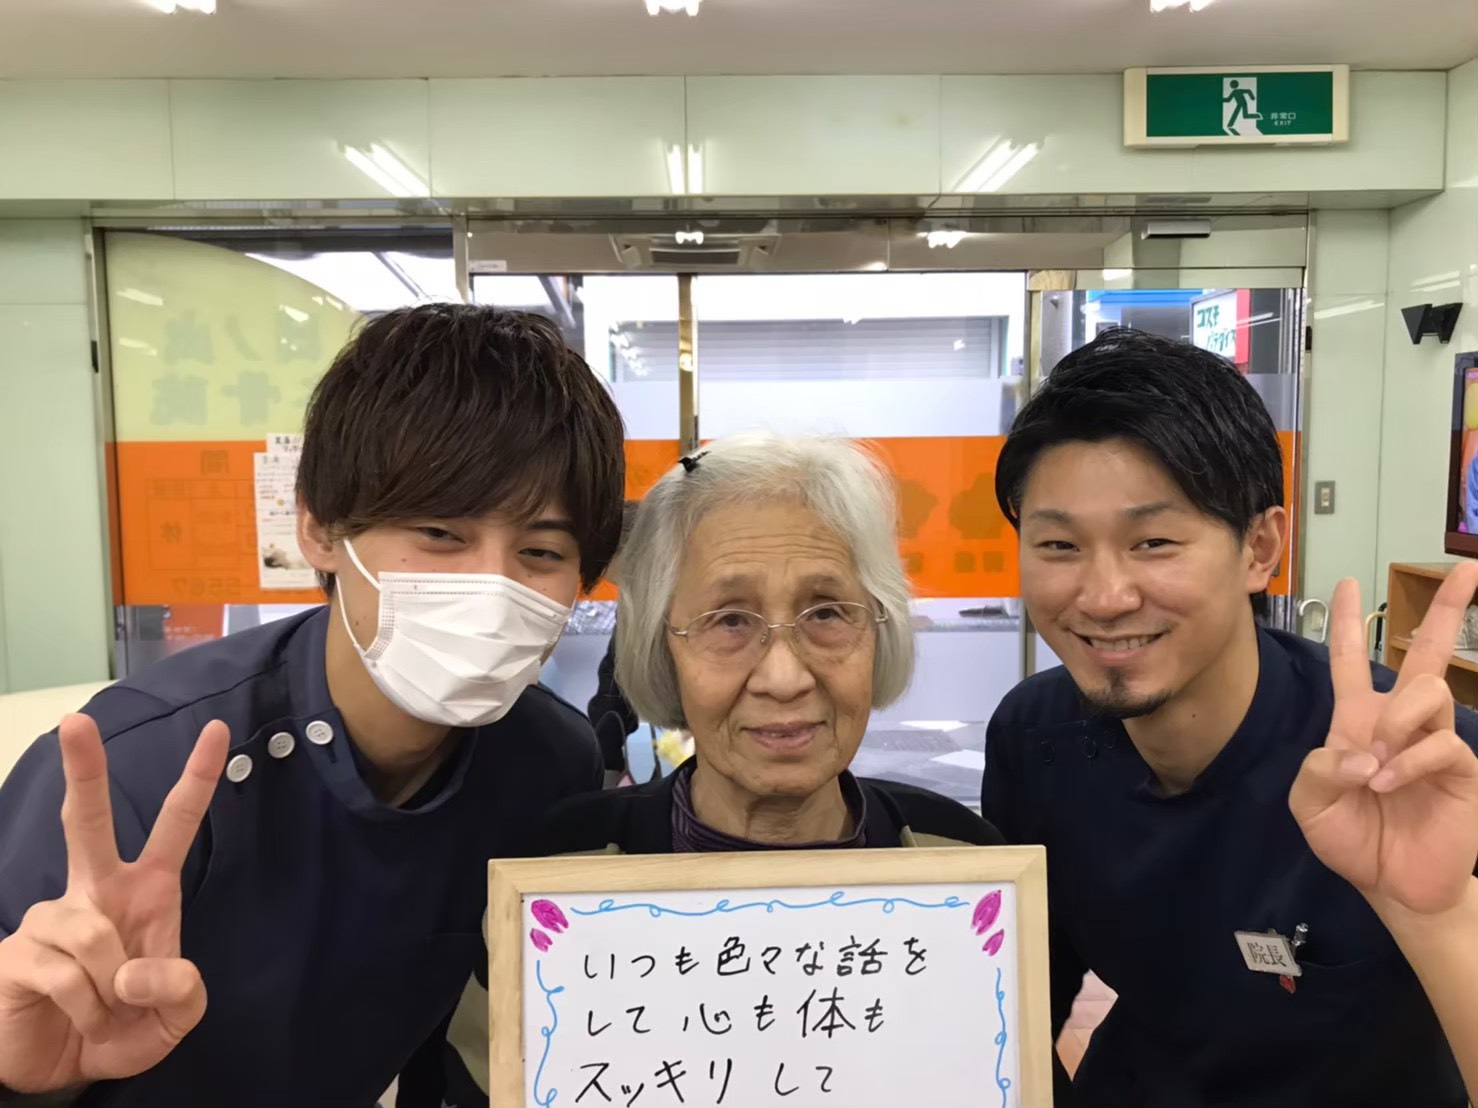 非常口
EXIT
コスモ
パラダイス
休
5567
院長
いつも色々な話を
して心も体も
スッキリして